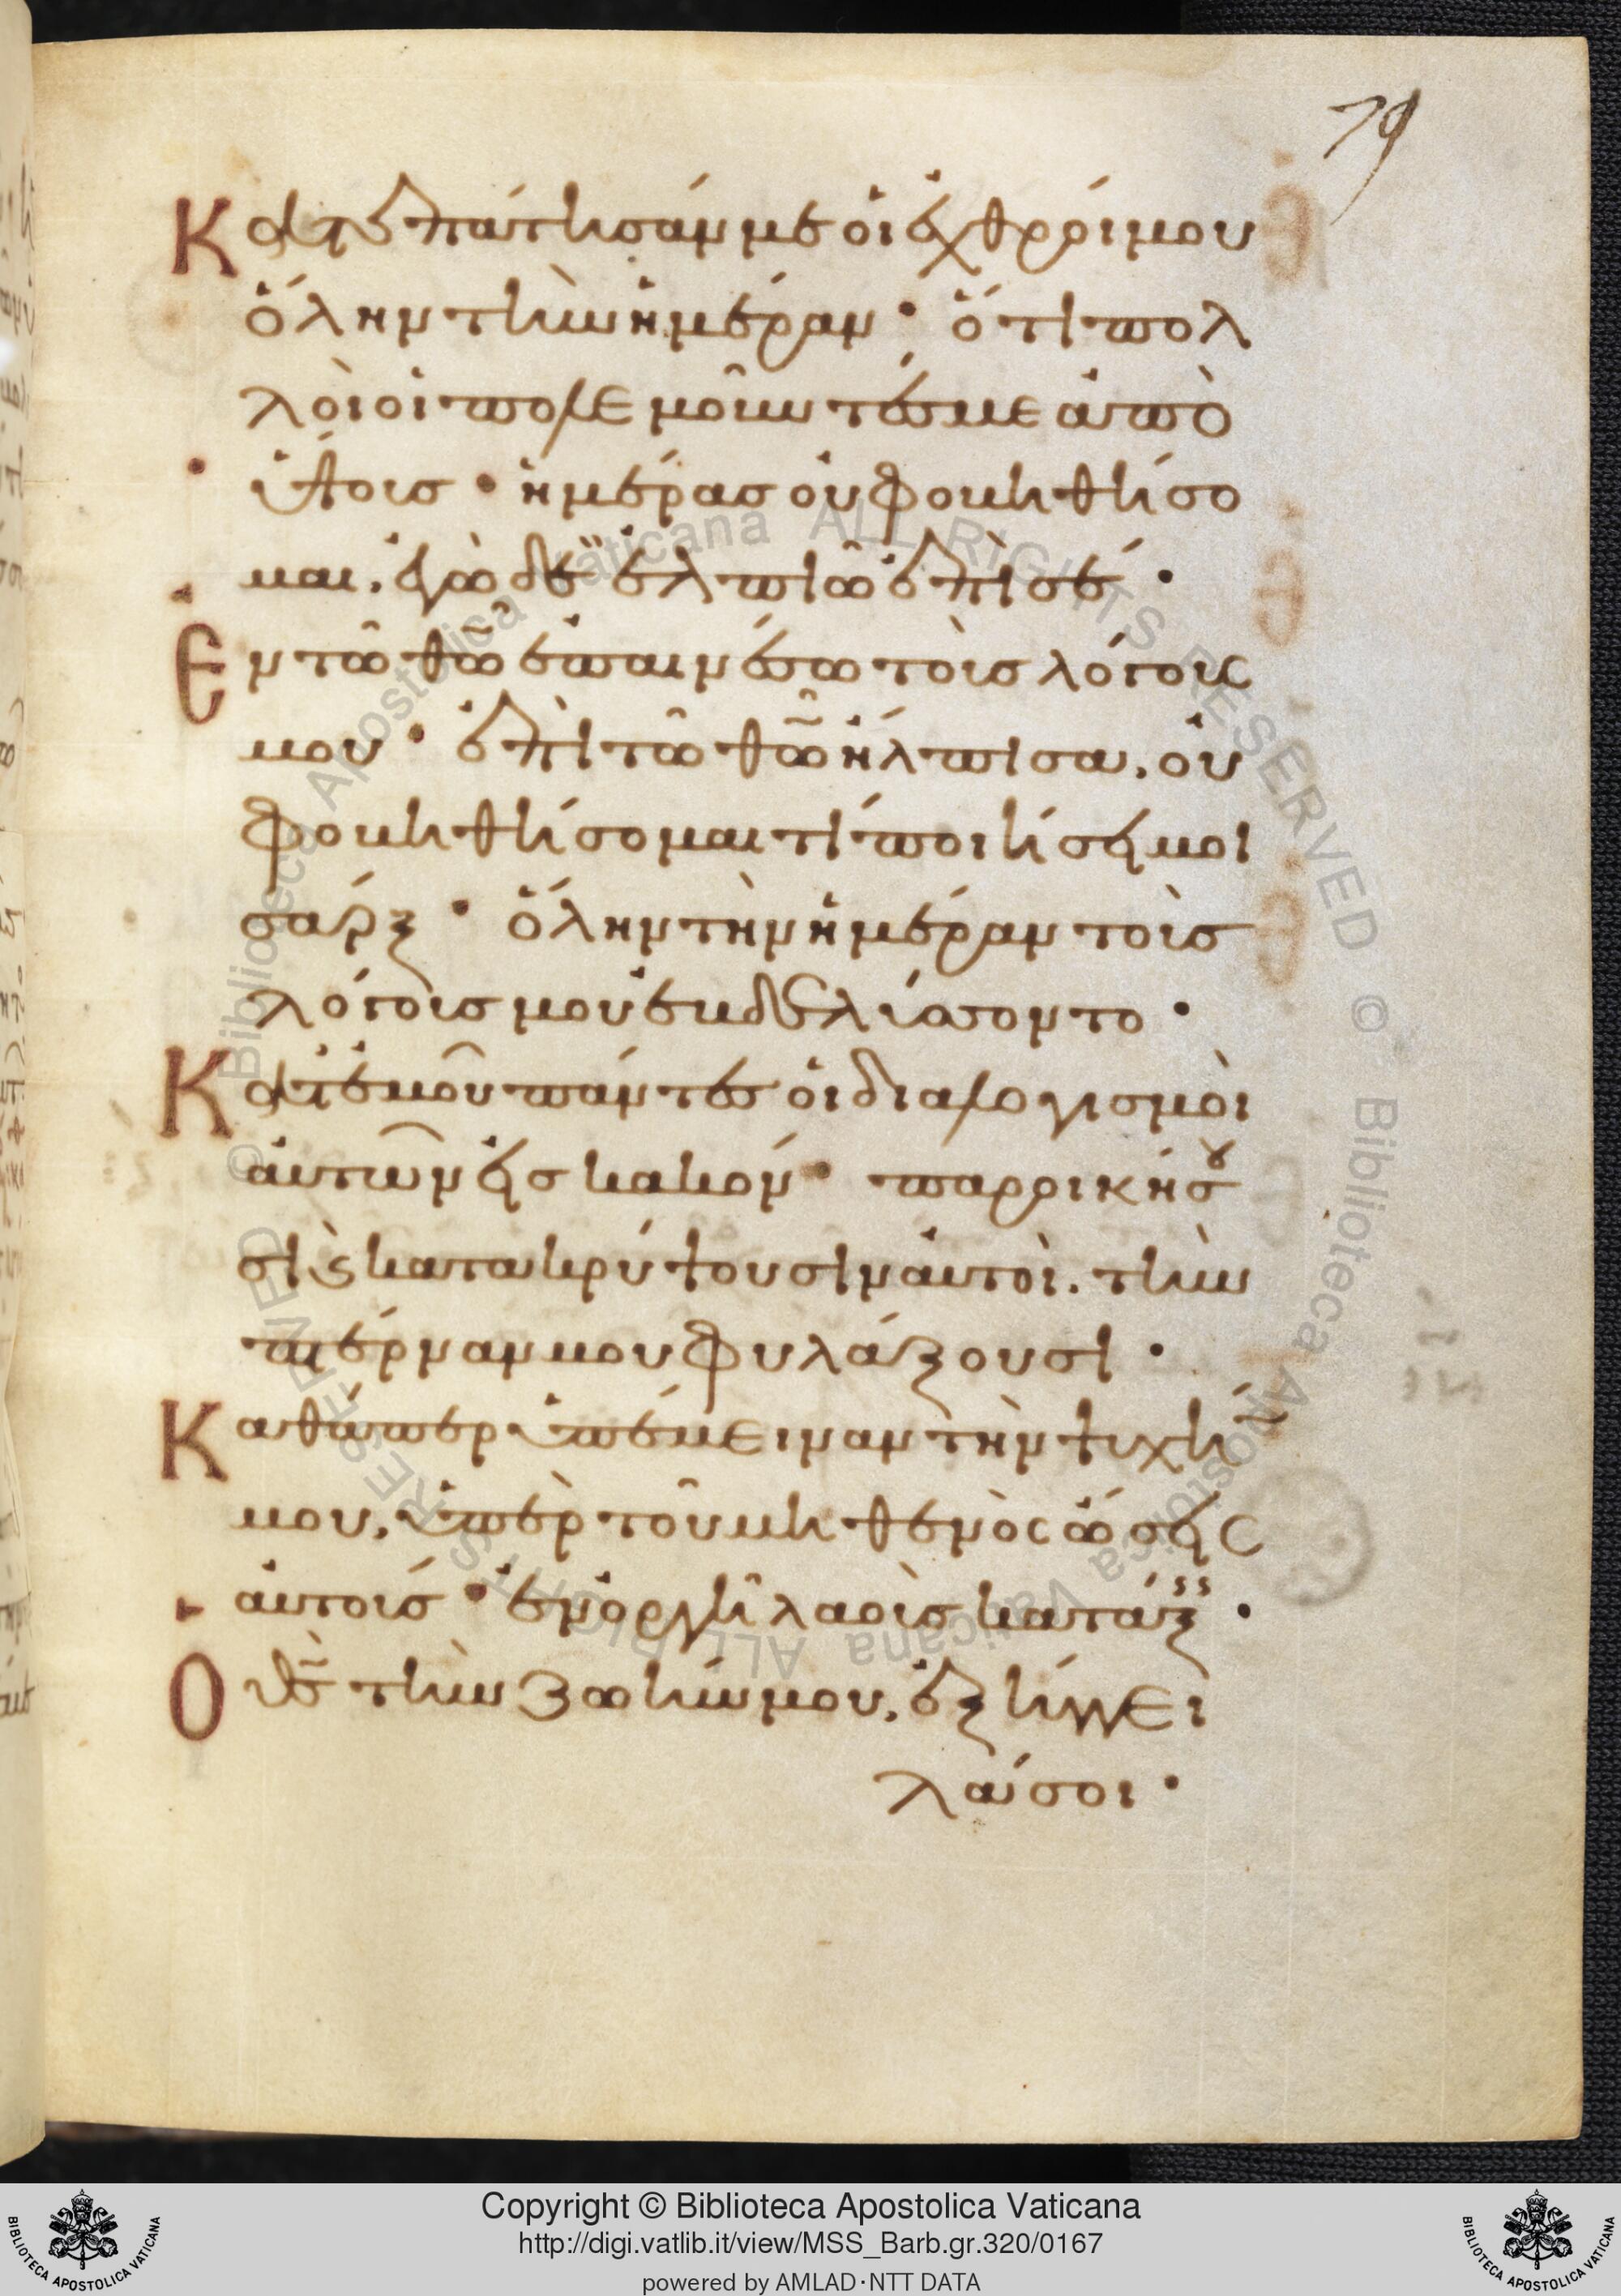 79
Κατεπάτησάν με οἱ ἐχθροί μου
ὅλην τὴν ἡμέραν· ὅτι πολ
λοὶ οἱ πολεμοῦντές με ἀπὸ
ὕψους· ἡμέρας οὐ φοβηθήσο
μαι, ἐγὼ δὲ ἐλπιῶ ἐπὶ σέ·
Ἐν τῶ θῶ ἐπαινέσω τοὺς λόγους
μου· ἐπὶ τῶ θῶ ἤλπισα, οὐ
φοβηθήσομαι τί ποιήσει μοι
σάρξ· ὅλην τὴν ἡμέραν τοὺς
λόγους μου ἐβδελύσσοντο·
Κατ' ἐμοῦ πάντες οἱ διαλογισμοὶ
αὐτῶν εἰς κακόν· παροικήσου
σι καὶ κατακρύψουσιν αὐτοὶ. τὴν
πτέρναν μου φυλάξουσι·
Καθάπερ ὑπέμειναν τὴν ψυχήν
μου, ὑπὲρ τοῦ μηθενὸς ὤσεις
αὐτούς· ἐν ὀργῆ λαοὺς κατάξεις·
Ὁ θς τὴν ζωήν μου, ἐξήγγει
λά σοι·
© Biblioteca Apostolica Vaticana ALL RIGHTS RESERVED © Biblioteca Apostolica Vaticana ALL RIGHTS RESERVED
Copyright © Biblioteca Apostolica Vaticana
http://digi.vatlib.it/view/MSS_Barb.gr.320/0167
powered by AMLAD·NTT DATA
BIBLIOTECA APOSTOLICA VATICANA
BIBLIOTECA APOSTOLICA VATICANA